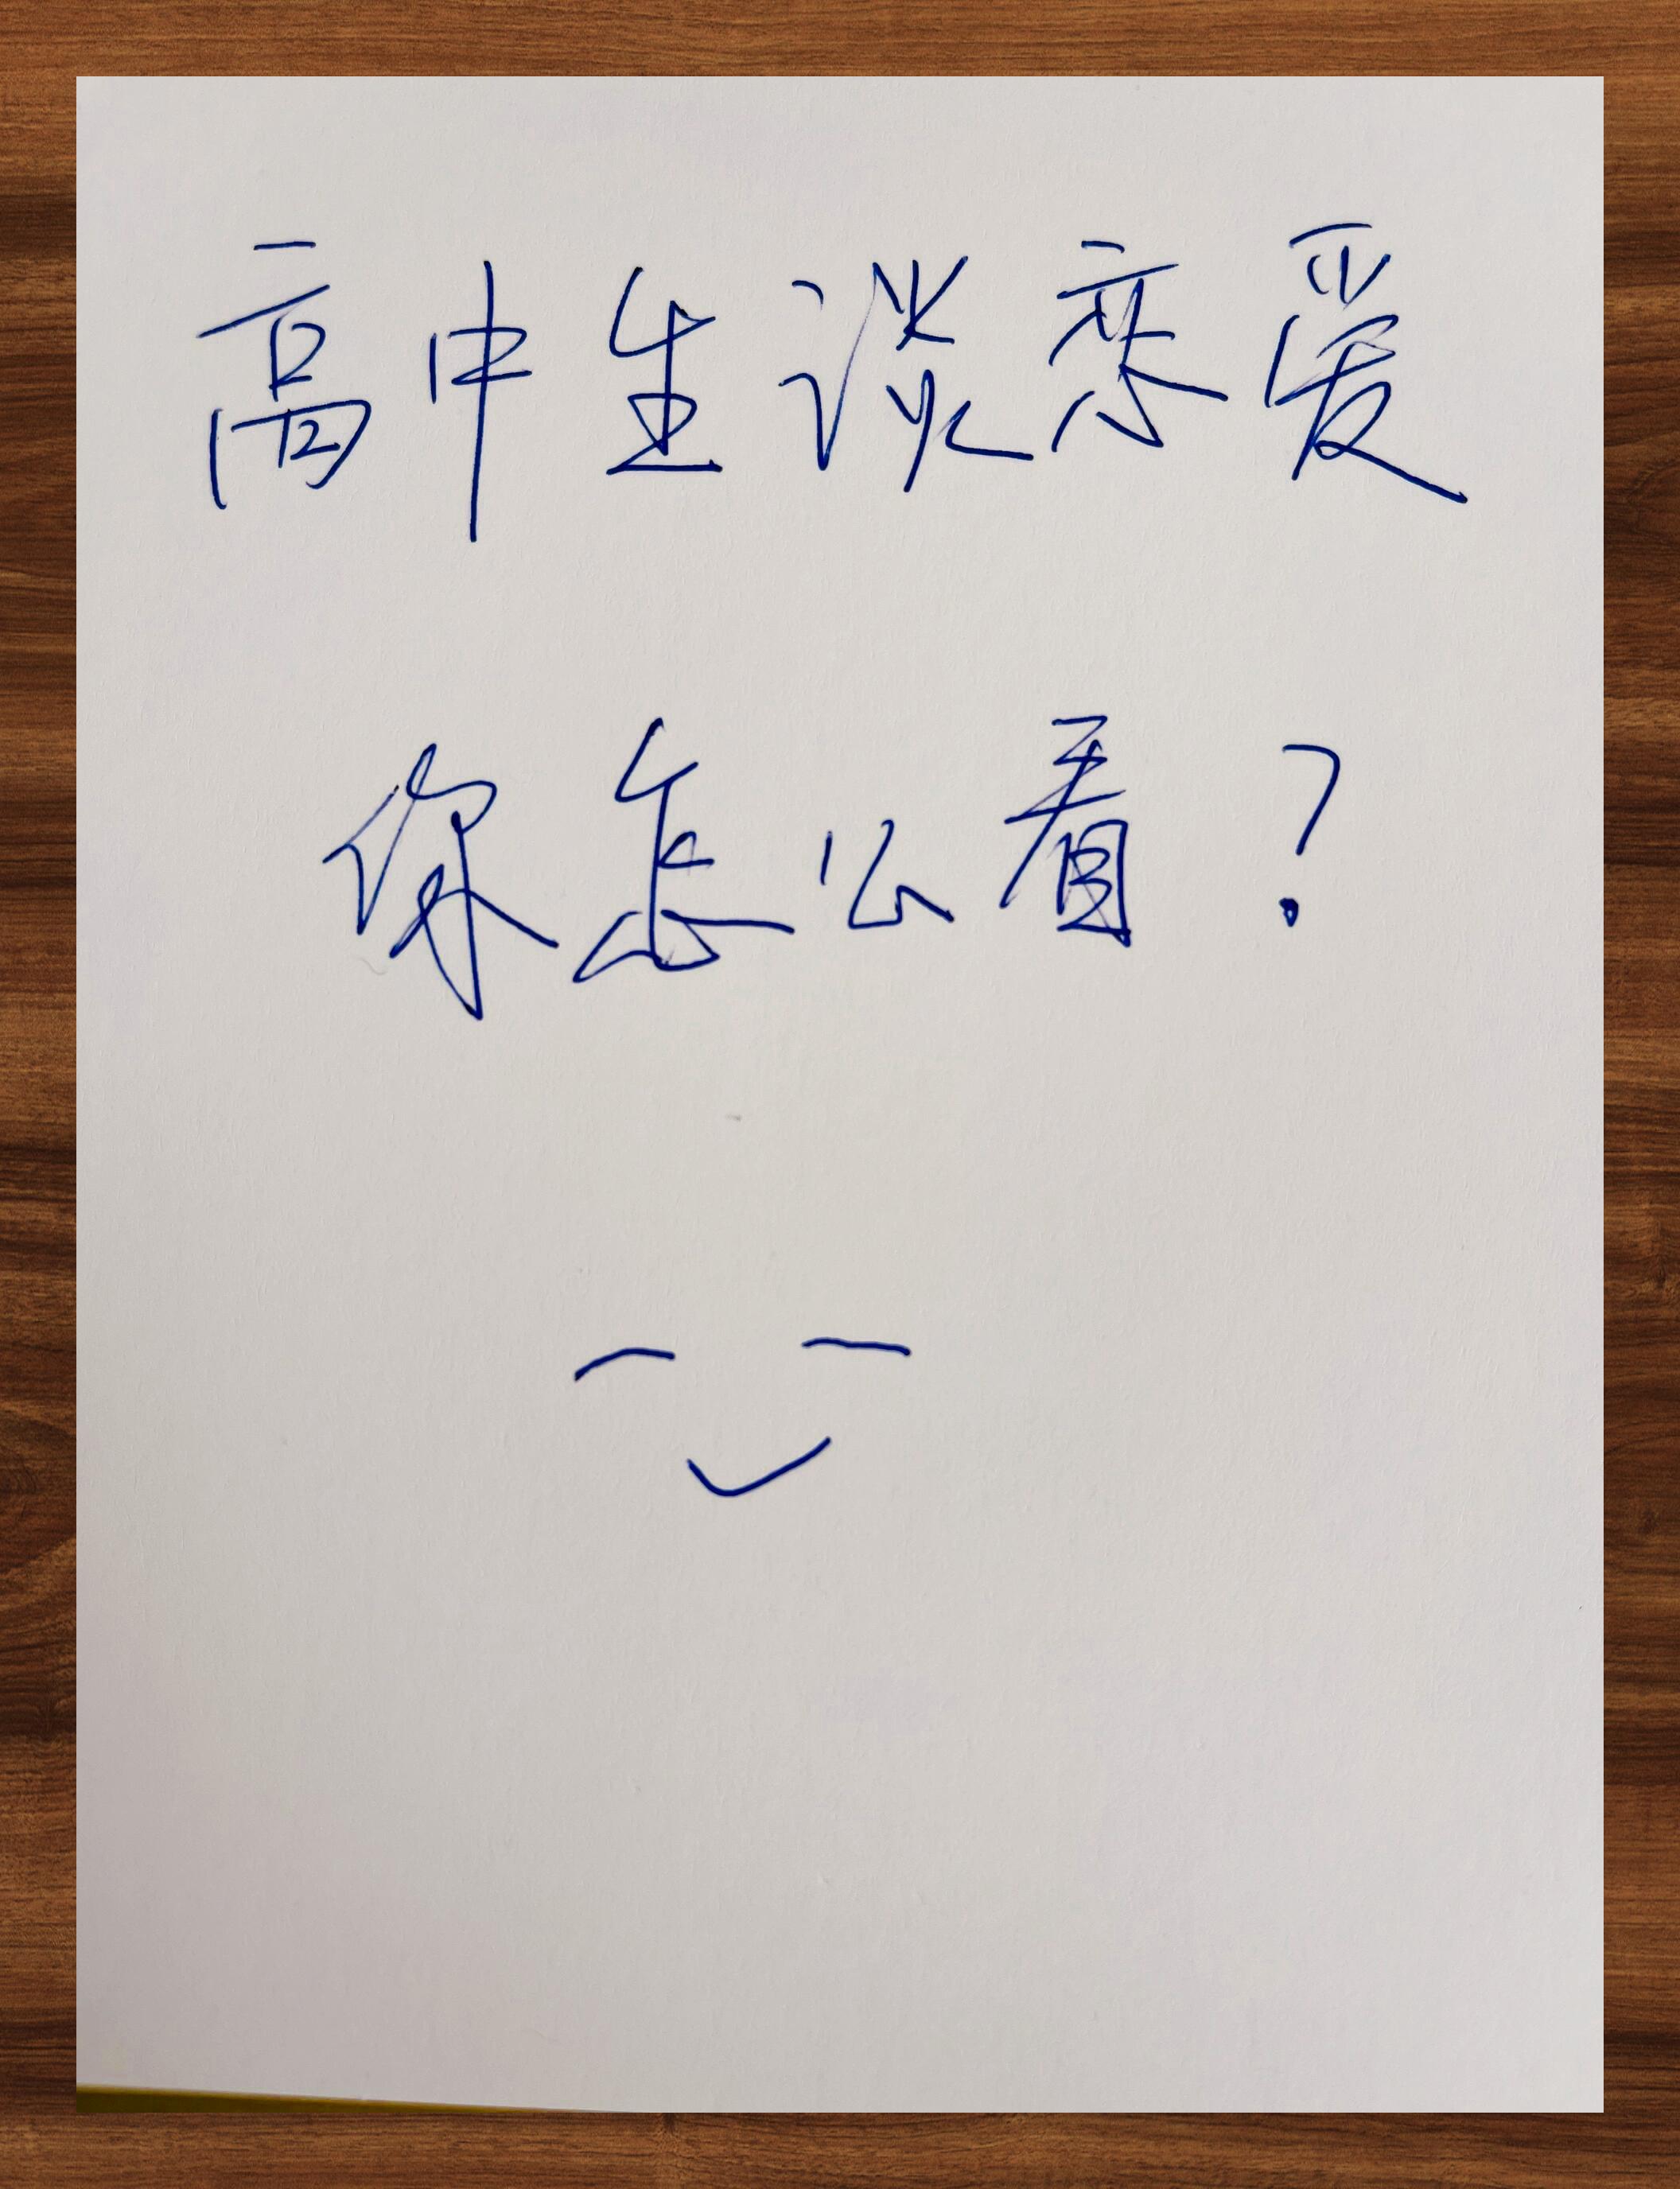 高中生谈恋爱
你怎么看?